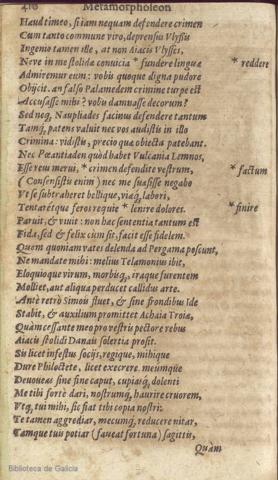 416 Metamorphoseon
Haud timeo, si iam nequam defendere crimen
Cum tanto commune viro, deprensus Vlyssis
Ingenio tamen ille, at non Aiacis Vlysses,
Neve in me stolida convicia * fundere lingua * reddere
Admiremur eum: vobis quoque digna pudore
Obijcit. an falso Palamedem crimine turpe est
Accusasse mihi? vobis damnasse decorum?
Sed neq, Naupliades facinus defendere tantum
Tamq, patens valuit nec vos audistis in illo
Crimina: vidistis, precioque obiecta patebant.
Nec Pæantiaden quòd habet Vulcania Lemnos,
Esse reus merui, * crimen defendite vestrum, * factum
(Consensistis enim) nec me suasisse negabo
Vt se subtraheret bellique, viæq, labori,
Tentaretque feros requie * lenire dolores. * finire
Paruit, & vivit: non hæc sententia tantum est
Fida, sed & felix cùm sit, facit esse fidelem.
Quem quoniam vates delenda ad Pergama poscunt,
Ne mandate mihi: melius Telamonius ibit,
Eloquioque virum, morbisq, iraque furentem
Molliet, aut aliqua perducet callidus arte.
Antè retrò Simois fluet, & sine frondibus Ide
Stabit, & auxilium promittet Achaia Troiæ,
Quàm cessante meo pro vestris pectore rebus
Aiacis stolidi Danais solertia prosit.
Sis licet infestus socijs, regique, mihique
Dure Philoctete, licet execrere. meumque
Devoveas sine fine caput, cupiasq, dolenti
Me tibi fortè dari, nostrumq, haurire cruorem,
Vtq, tui mihi, sic fiat tibi copia nostri:
Te tamen aggrediar, mecumq, reducere nitar,
Tamque tuis potiar (faveat fortuna) sagittis,
Quàm
Biblioteca de Galicia